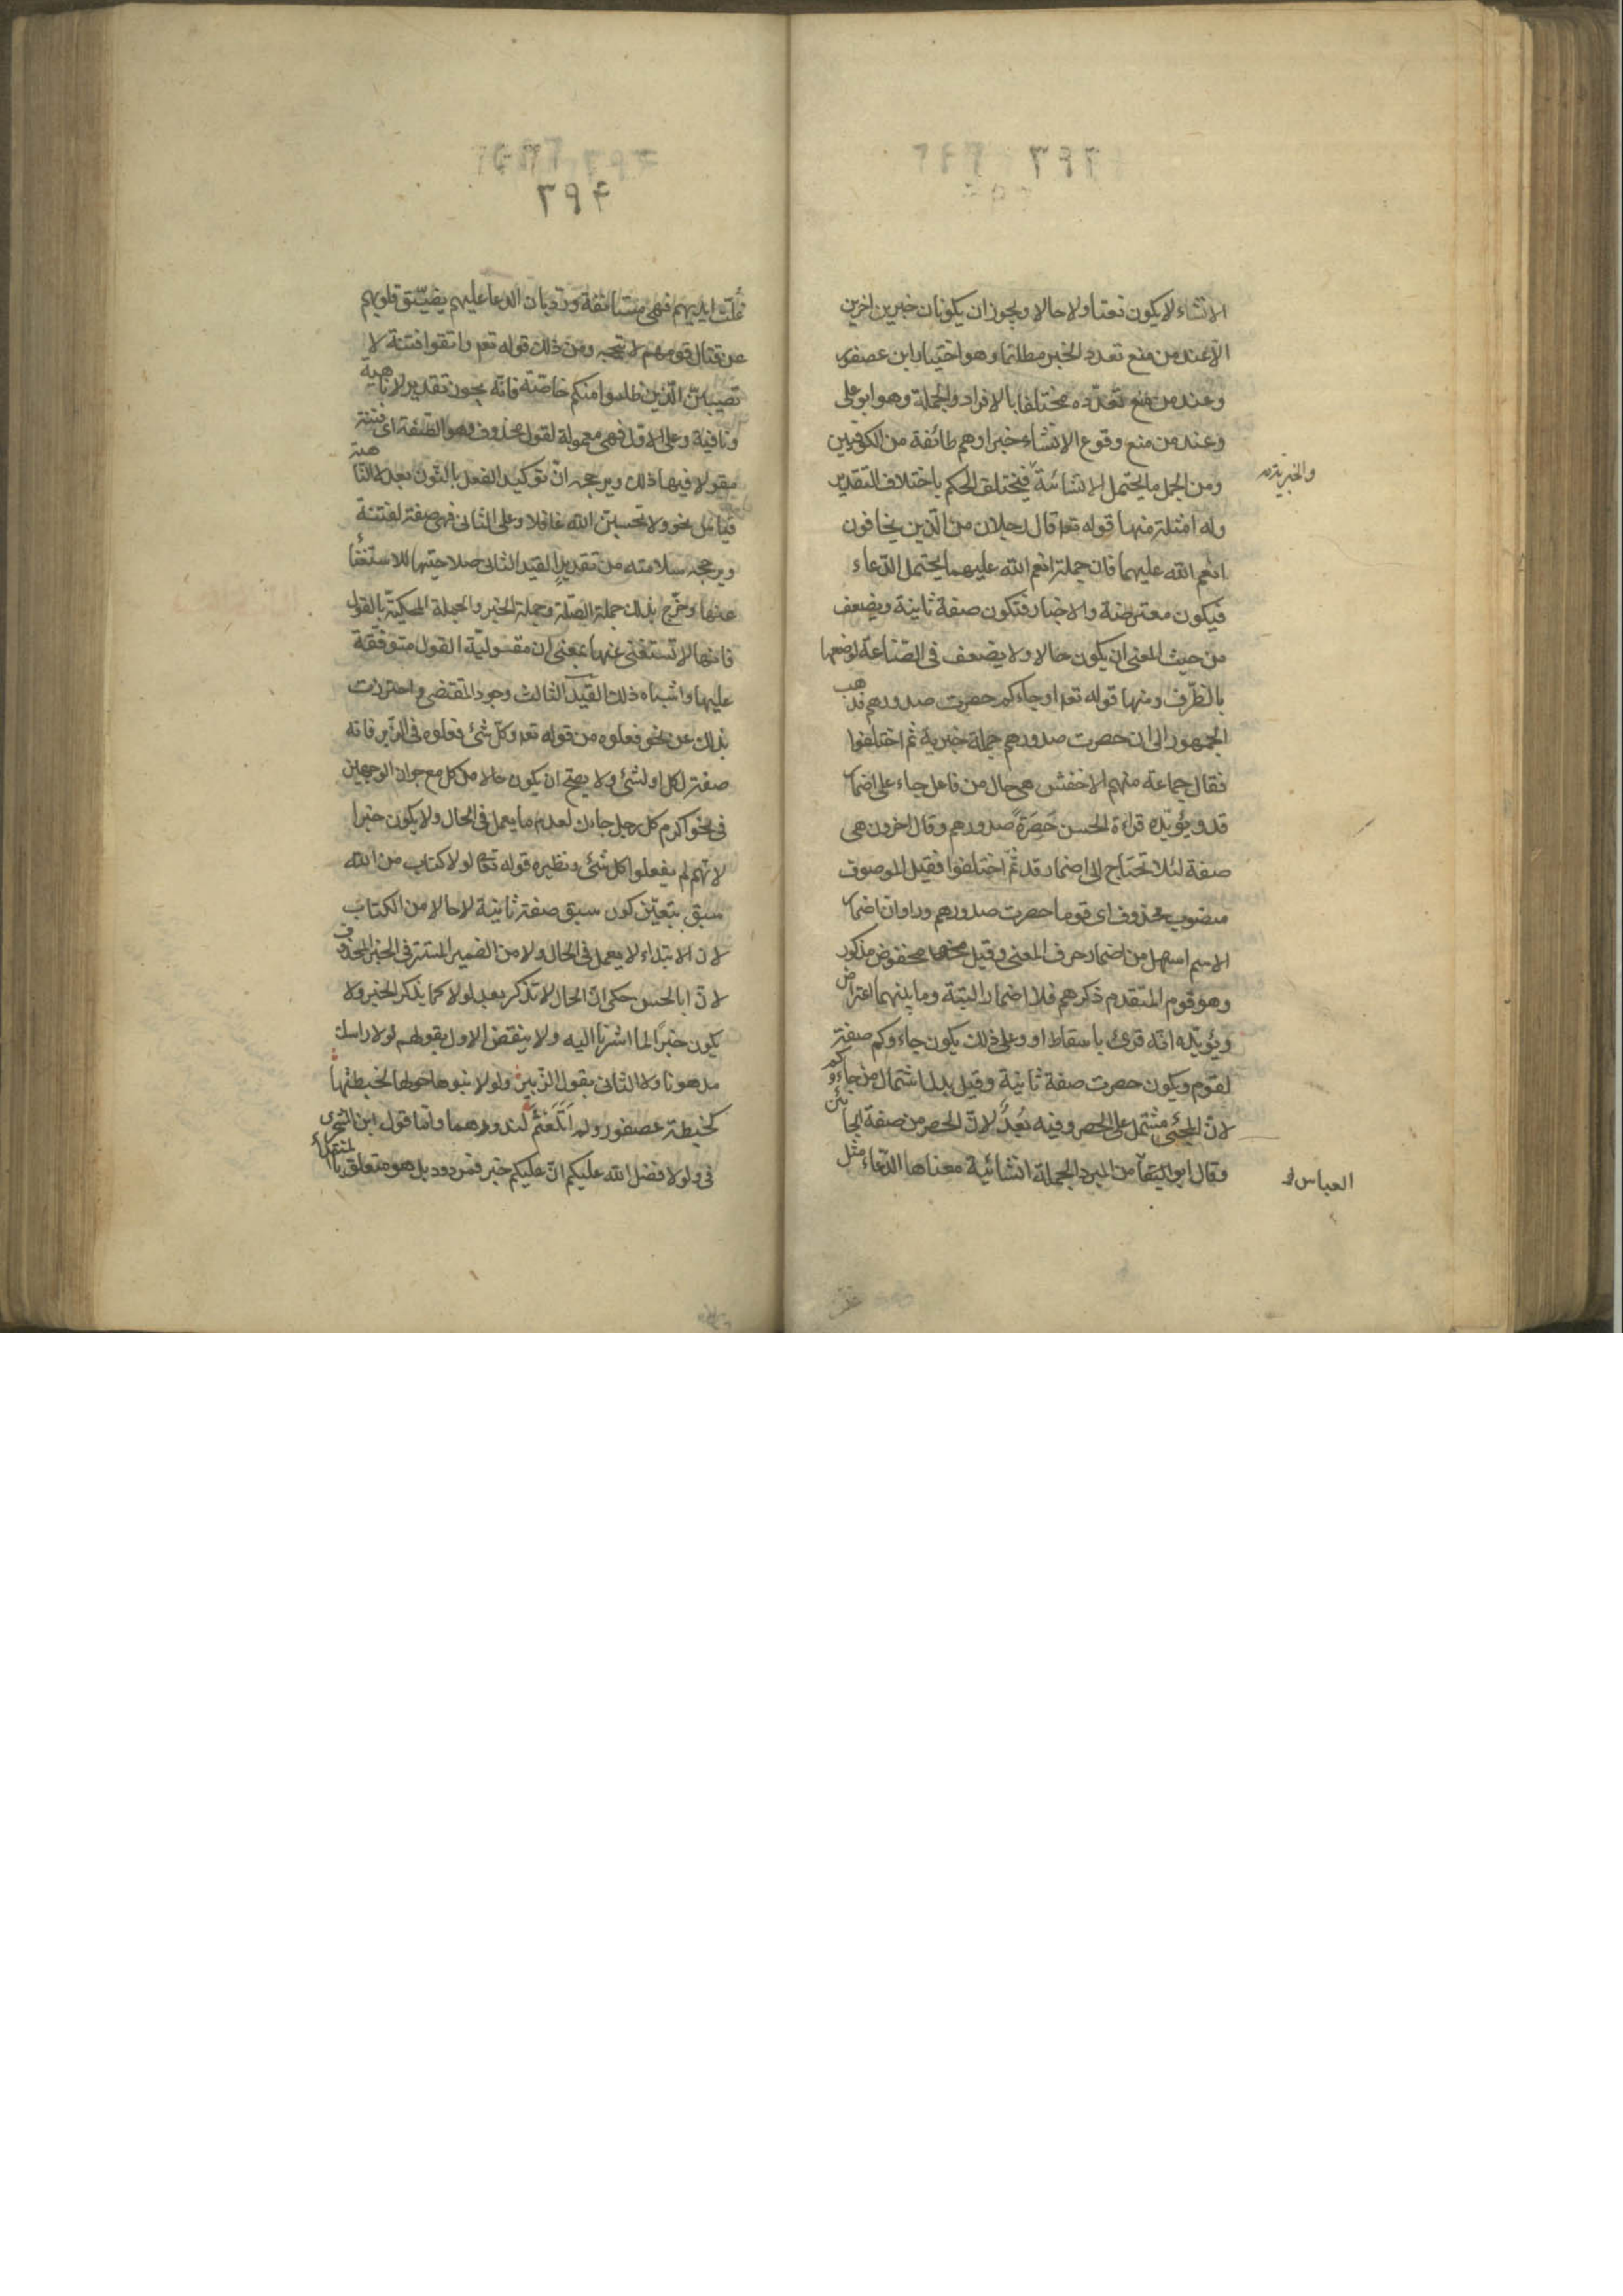 ٣٩٣
الانشاء لا يكون نعتا ولا حالا ويجوز ان يكونان خبرين اخرين
الا عند من منع تعدد الخبر مطلقا وهو اختيار ابن عصفور
وعند من منع تعدده مختلفا بالافراد والجملة وهو ابو على
وعند من منع وقوع الانشاء خبرا وهم طائفة من الكوفيين
ومن الجمل ما يحتمل الانشائية فيختلف الحكم باختلاف التقدير
والخبرية
وله امثلة منها قوله تعه قال رجلان من الذين يخافون
انعم الله عليهما فان جملة انعم الله عليهما يحتمل الدعاء
فيكون معترضة والاخبار فتكون صفة ثانية ويضعف
من حيث المعنى ان يكون حالا ولا يضعف فى الصناعة لوصفها
بالظرف ومنها قوله تعه او جاءكم حصرت صدورهم فذهب
الجمهور الى ان حصرت صدورهم جملة خبرية ثم اختلفوا
فقال جماعة منهم الاخفش هى حال من فاعل جاء على اضمار
قد ويؤيده قراءة الحسن حَصِرَةً صدورهم وقال اخرون هى
صفة لئلا تحتاج الى اضمار قد ثمّ اختلفوا فقيل الموصوف
منصوب محذوف اى قوما حصرت صدورهم وراوا ان اضمار
الاسم اسهل من اضمار حرف المعنى وقيل مخفوض مذكور
وهو قوم المتقدم ذكرهم فلا اضمار البتة وما بينهما اعتراض
ويؤيده انه قرئ باسقاط او وعلى ذلك يكون جاءوكم صفة
لقوم ويكون حصرت صفة ثانية وقيل بدل اشتمال من جاءوكم
لان المجئ مشتمل على الحصر وفيه بُعدٌ لان الحصر من صفة الجائين
وقال ابو العباس المبرد الجملة انشائية معناها الدعاء مثل
العباس
٣٩٤
غُلّت ايديهم فهى مستانفة وردّ بان الدعاء عليهم بضيق قلوبهم
عن قتال قومهم لا يتجه ومن ذلك قوله تعه واتقوا فتنة لا
تصيبنّ الّذين ظلموا منكم خاصّة فانّه يجوز تقدير لا ناهية
ونافية وعلى الاول فهى معمولة لقول محذوف وهو الصفة اى فتنة
مقولا فيها ذلك ويرجحه انّ توكيد الفعل بالنّون بعد لا الناهية
قياس نحو ولا تحسبنّ الله غافلا وعلى الثانى فهى صفة لفتنة
ويرجحه سلامته من تقدير القيد الثانى صلاحيتها للاستغناء
عنها وخرج بذلك جملة الصّلة وجملة الخبر والجملة المحكيّة بالقول
فانها لا تستغنى عنها بمعنى ان مقوليّة القول متوقّفة
عليها واشباه ذلك القيد الثالث وجود المقتضى واحترزت
بذلك عن نحو فعلوه من قوله تعه وكلّ شئ فعلوه فى الزّبر فانه
صفة لكل او لشئ ولا يصحّ ان يكون حالا من كل مع جواز الوجهين
فى نحو اكرم كل رجل جاءك لعدم ما يعمل فى الحال ولا يكون خبرا
لانّهم لم يفعلوا كل شئ ونظيره قوله تعه لولا كتاب من الله
سبق يتعيّن كون سبق صفة ثانية لا حالا من الكتاب
لان الابتداء لا يعمل فى الحال ولا من الضمير المستتر فى الخبر المحذوف
لانّ ابا الحسن حكى انّ الحال لا تذكر بعد لولا كما يذكر الخبر ولا
يكون خبرًا لما اشرنا اليه ولا ينقض الاول بقولهم لولا راسك
مدهونا ولا الثانى بقول الزّبير ولولا بنوها حولها لخبطتها
كخبطة عصفور ولم اَتَلَعْثَم لندورهما واما قول ابن الشجرى
فى ولولا فضل الله عليكم انّ عليكم خبر فمردود بل هو متعلق بالمبتدأ